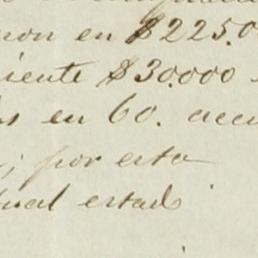 en $225.0
iente $30.000
en 60. accı
; por esta
tual estado